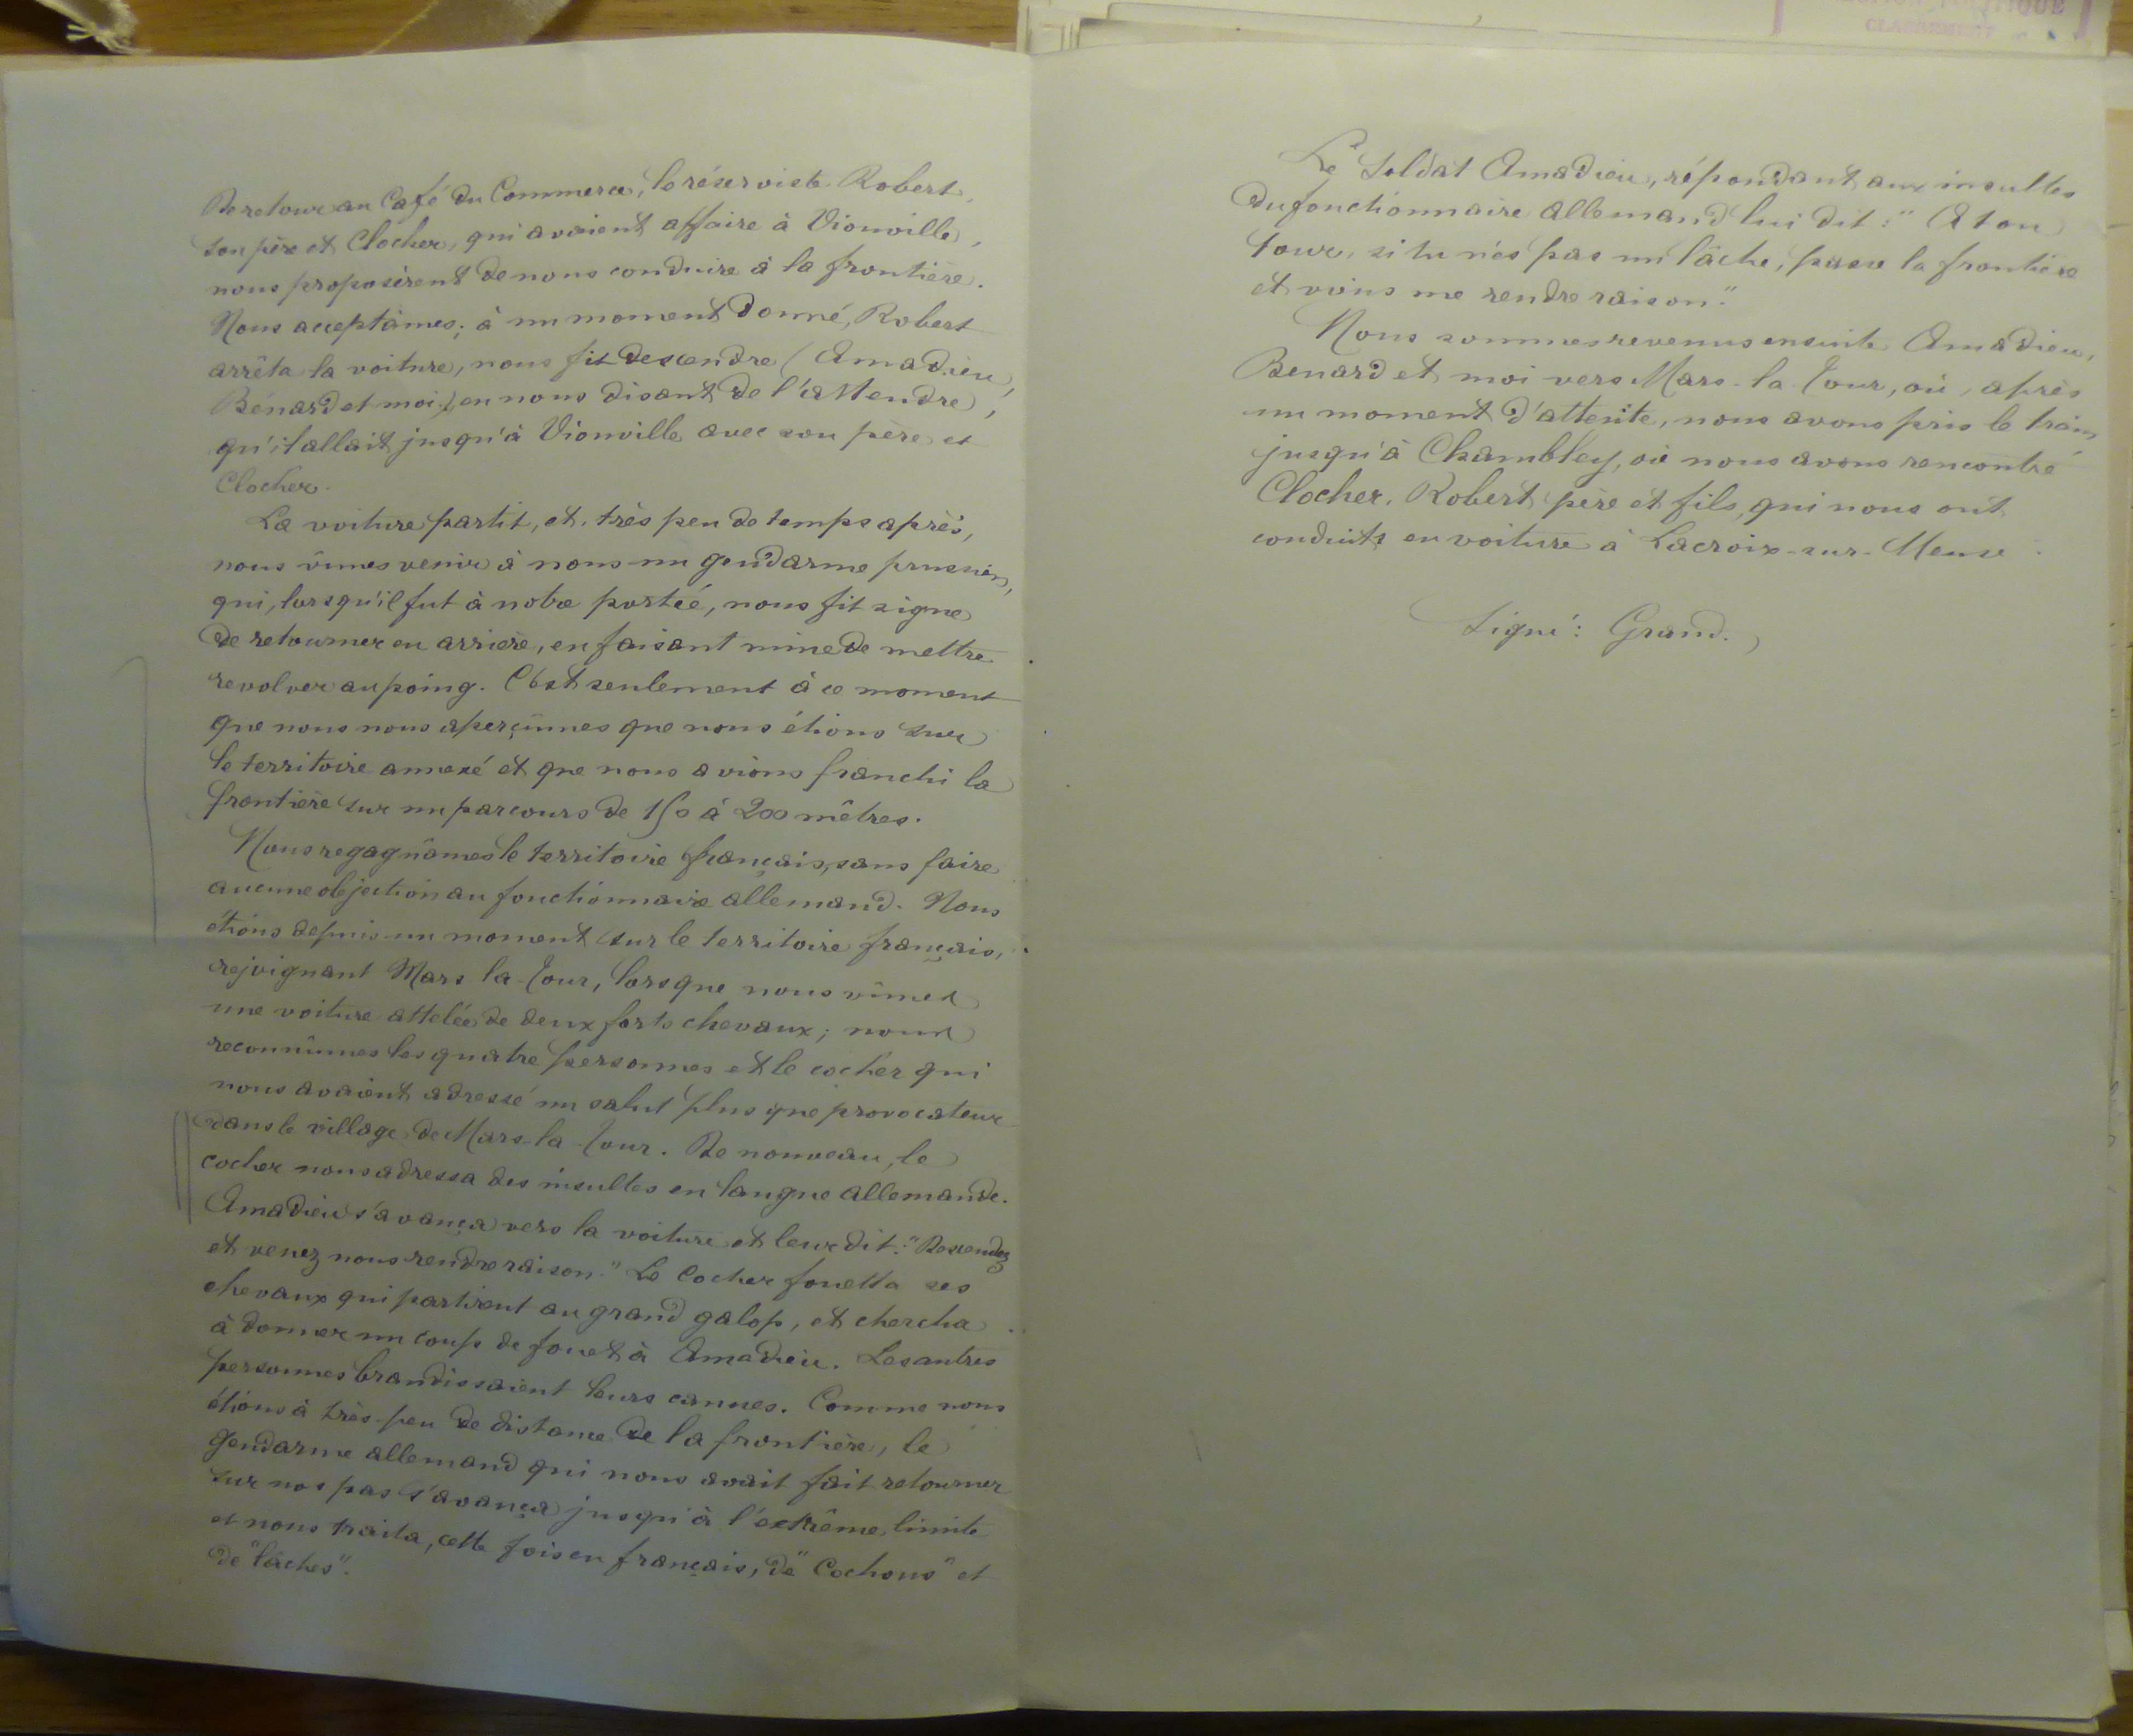 De retour au Café du Commerce, le réserviste Robert,
son père et Clocher, qui avaient affaire à Vionville,
nous proposèrent de nous conduire à la frontière.
Nous acceptâmes; à un moment donné, Robert
arrêta la voiture, nous fit descendre (Amadieu,
Bénard et moi) en nous disant de l'attendre,
qu'il allait jusqu'à Vionville avec son père et
Clocher.
La voiture partit, et, très peu de temps après,
nous vîmes venir à nous un gendarme prussien,
qui, lorsqu'il fut à notre portée, nous fit signe
de retourner en arrière, en faisant mine de mettre
revolver au poing. C'est seulement à ce moment
que nous nous aperçûmes que nous étions sur
le territoire annexé et que nous avions franchi la
frontière sur un parcours de 150 à 200 mètres.
Nous regagnâmes le territoire français, sans faire
aucune objection au fonctionnaire allemand. Nous
étions depuis un moment sur le territoire français,
rejoignant Mars la-Tour, lorsque nous vîmes
une voiture attelée de deux forts chevaux; nous
reconnûmes les quatre personnes et le cocher qui
nous avaient adressé un salut plus que provocateur
dans le village de Mars-la-Tour. De nouveau, le
cocher nous adressa des insultes en langue allemande.
Amadieu s'avança vers la voiture et leur dit: "Descendez
et venez nous rendre raison." Le Cocher fouetta ses
chevaux qui partirent au grand galop, et chercha
à donner un coup de fouet à Amadieu. Les autres
personnes brandissaient leurs cannes. Comme nous
étions à très-peu de distance de la frontière, le
gendarme allemand qui nous avait fait retourner
sur nos pas s'avança jusqu'à l'extrême limite
et nous traita, cette fois en français, de "Cochons" et
de "lâches".
Le Soldat Amadieu, répondant aux insultes
du fonctionnaire allemand lui dit: "A ton
tour, si tu n'es pas un lâche, passe la frontière
et viens me rendre raison."
Nous sommes revenus ensuite Amadieu,
Benard et moi vers Mars-la-Tour, où, après
un moment d'attente, nous avons pris le train
jusqu'à Chambley, où nous avons rencontré
Clocher, Robert père et fils, qui nous ont
conduits en voiture à Lacroix-sur-Meuse.
Signé: Grand.
POLITIQUE
CLASSEMENT